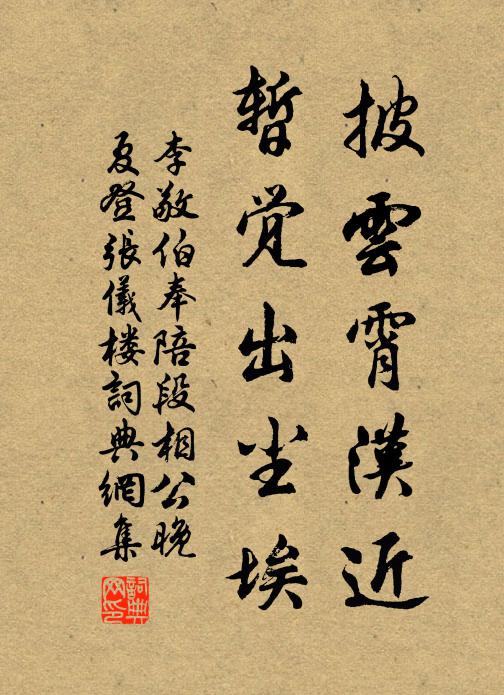 披雲霄漢近
暫覚出尘埃
李敬伯奉陪段相公晚
夏登張儀楼詞典網集
詞典网印